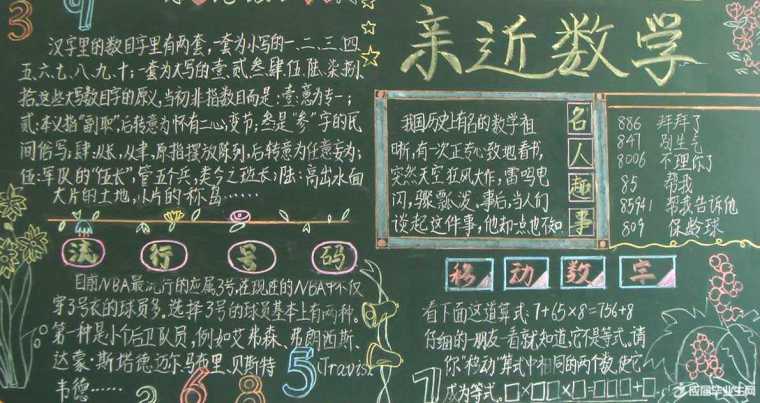 亲近数学
汉字里的数目字里有两套,一套为小写的一.二.三.四
五.六.七.八.九.十;一套为大写的壹.贰.叁.肆.伍.陆.柒.捌.
拾,这些大写数目字的原义,当初非指数目而是:壹:意为专一;
贰:本义指“副职”,后转意为怀有二心,变节;叁是“参”字的民
间俗写,肆:从长,从聿,原指摆放陈列,后转意为任意妄为;
伍:军队的“伍长”,管五个兵,
陆:高出水面
大片的土地,
流行号码
目前NBA最流行的应属3号,在现在的NBA中不仅
穿3号衣的球员多,选择3号的球员基本上有两种。
第一种是小个后卫队员,例如艾弗森、弗朗西斯、
达蒙·斯塔德迈尔马布里、贝斯特(Travis
韦德……
名人趣事
我国历史上有名的数学祖
有一次正专心致地看书,
突然天空狂风大作,雷鸣电
闪,骤 事后,当人们
谈起这件事,他却一点也不知
886 拜拜了
847 别生气
8006 不理你了
85 帮我
85941 帮我告诉他
809 保龄球
移动数字
看下面这道算式:1+65×8=756+8
仔细的朋友一看就知道,它是等式。请
你“移动”算式中相同的两个数,使它
成为等式。□×□□×□=□□□+□
应届毕业生网